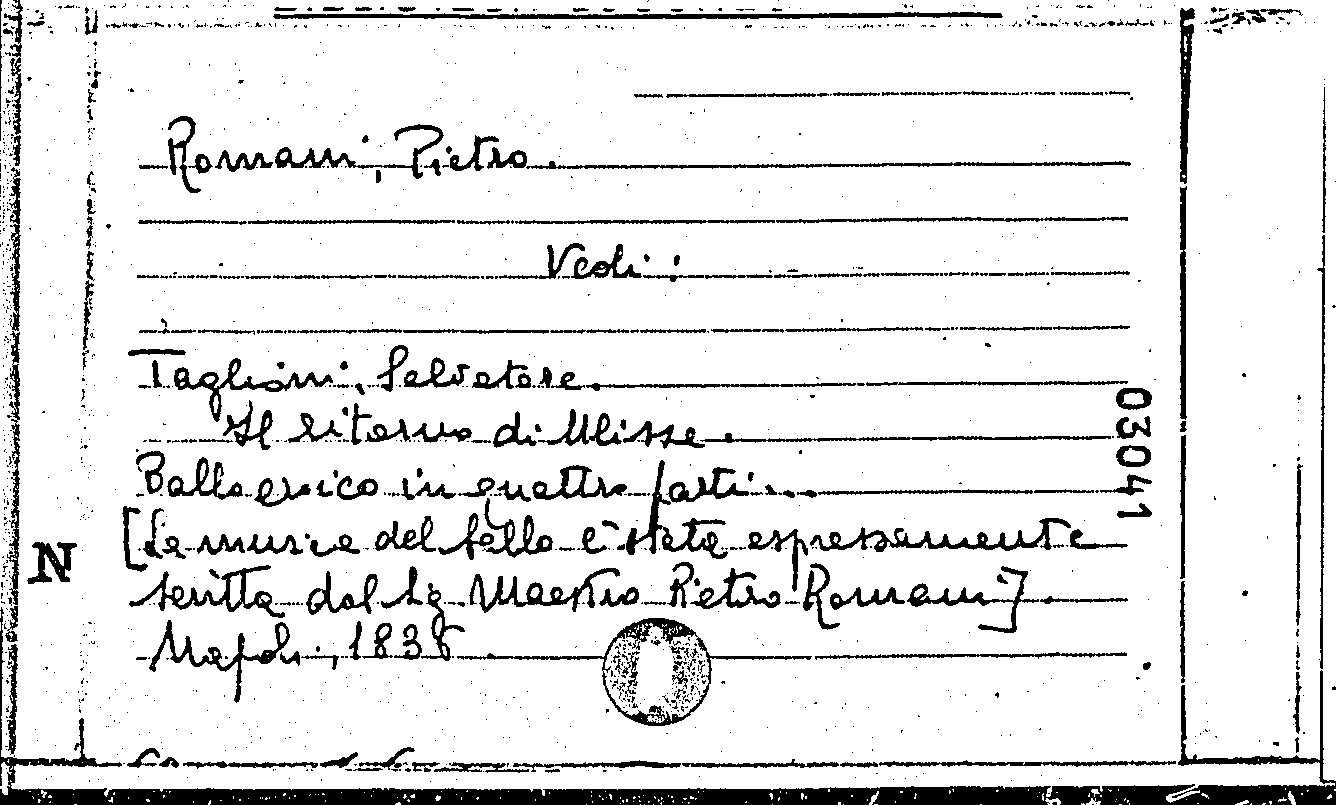 Romani, Pietro.
Vedi:
Taglioni, Salvatore.
Il ritorno di Ulisse.
Ballo eroico in quattro parti...
[La musica del ballo è stata espressamente
N
scritta dal Sig. Maestro Pietro Romani].
Napoli, 
03041